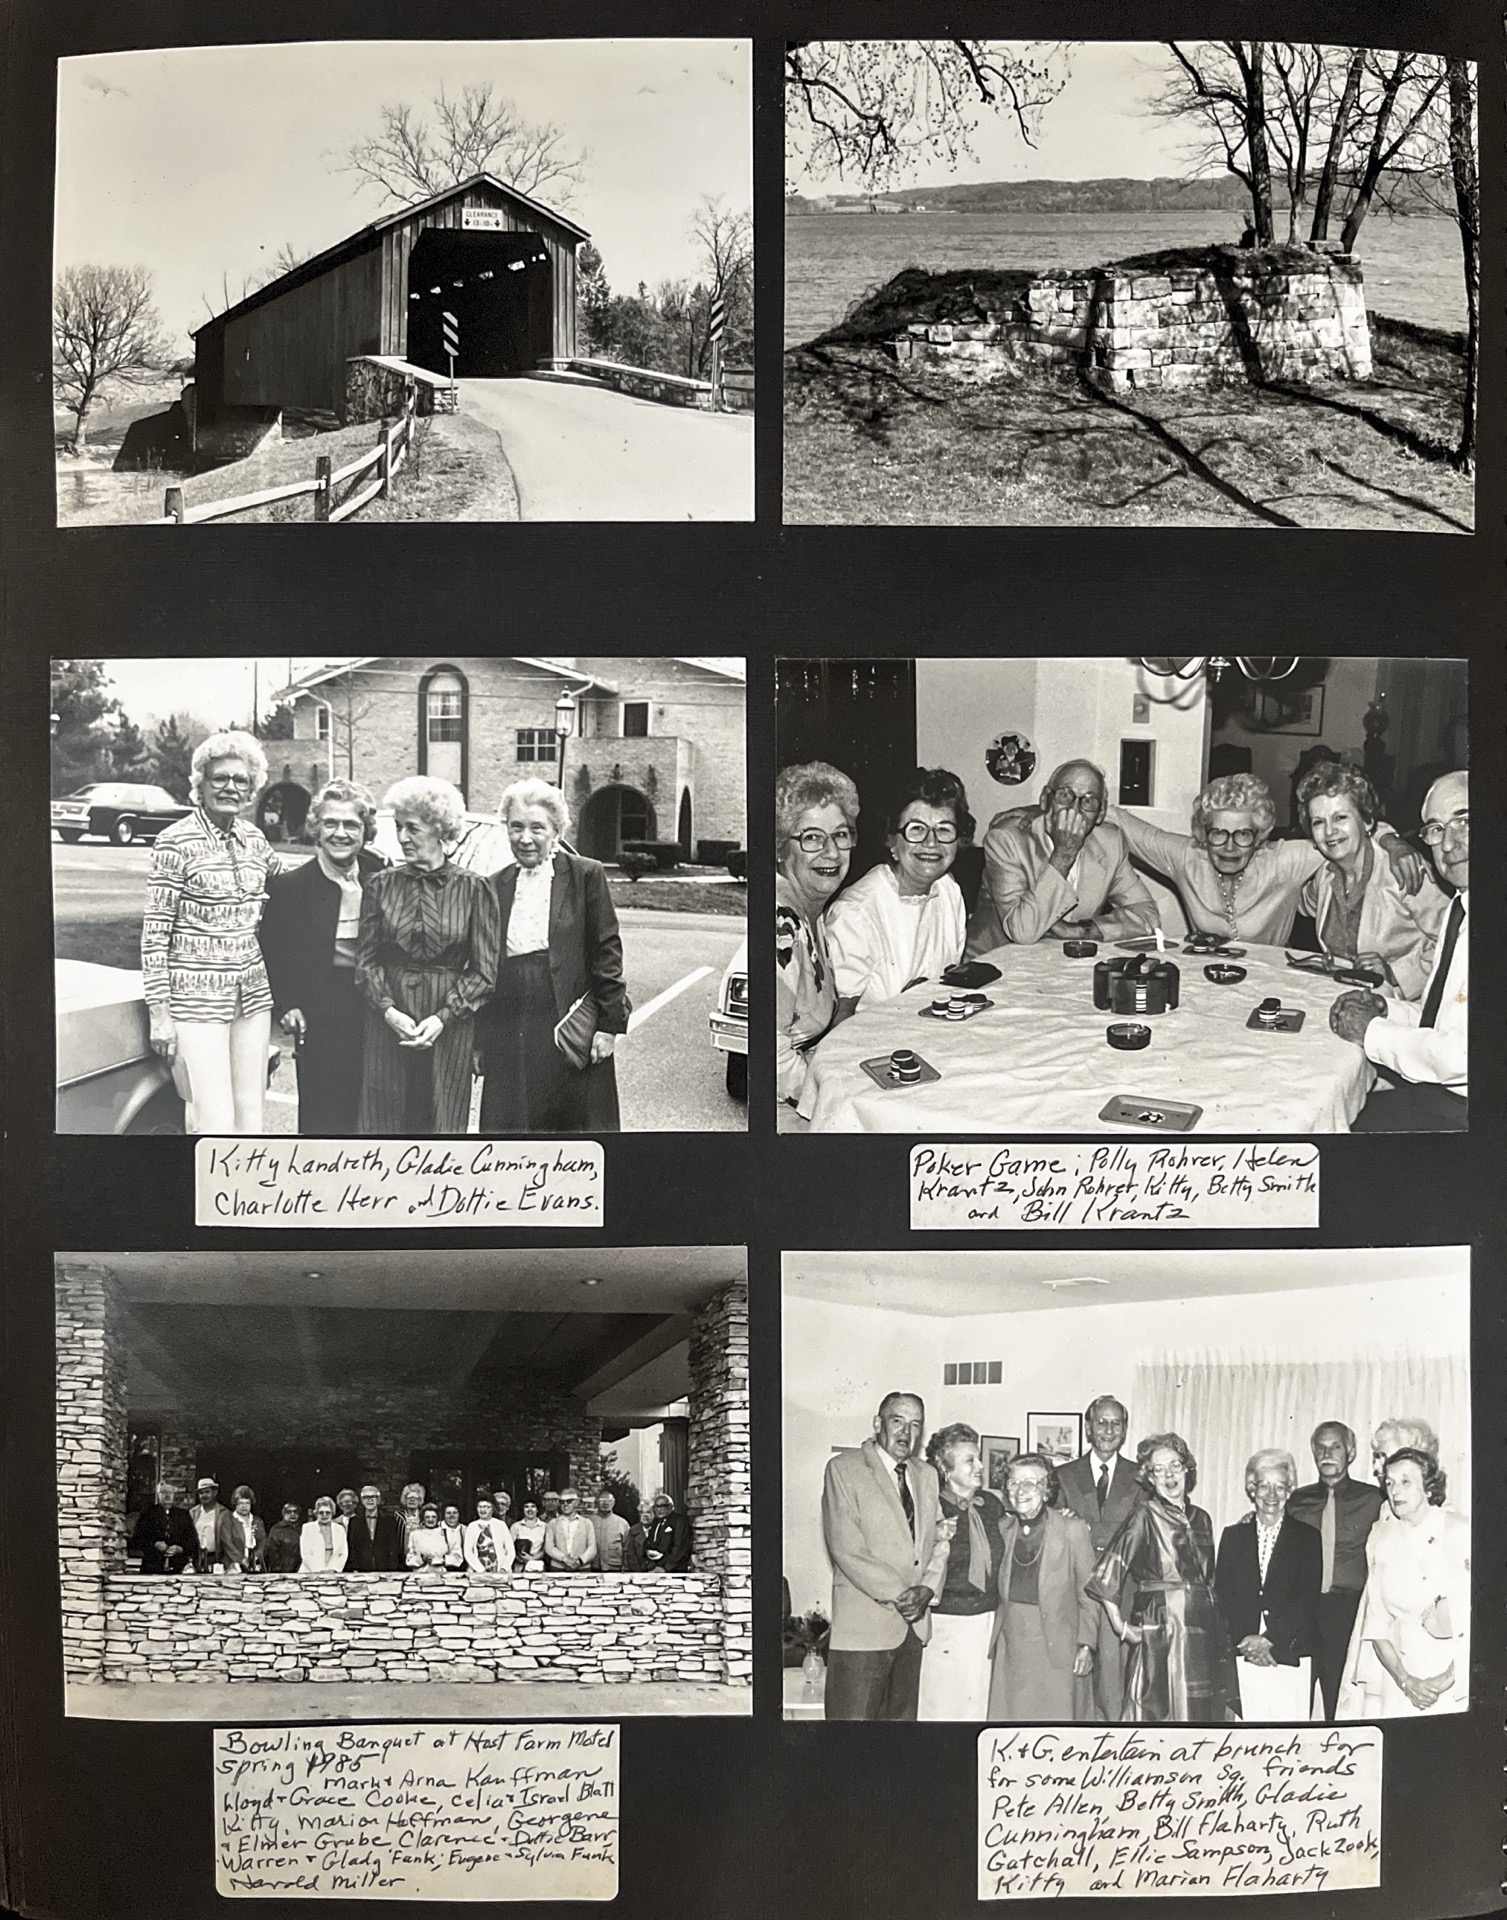 CLEARANCE
13-10
Kitty Landreth, Gladie Cunningham,
Charlotte Herr and Dottie Evans.
Poker Game; Polly Rohrer, Helen
Krantz, John Rohrer, Kitty, Betty Smith
and Bill Krantz
Bowling Banquet at Host Farm Motel
spring 1985
Mark + Arna Kauffman
Lloyd + Grace Cooke, Celia + Israel Blatt
Kitty, Marion Hoffman, Georgene
+ Elmer Grube Clarence + Dottie Barr
Warren + Glady Fank, Eugene + Sylvia Funk
Harold Miller.
K. + G. entertain at brunch for
for some Williamson Sq. friends
Pete Allen, Betty Smith, Gladie
Cunningham, Bill Flaharty, Ruth
Gatchall, Ellie Sampson, Jack Zook,
Kitty and Marian Flaharty